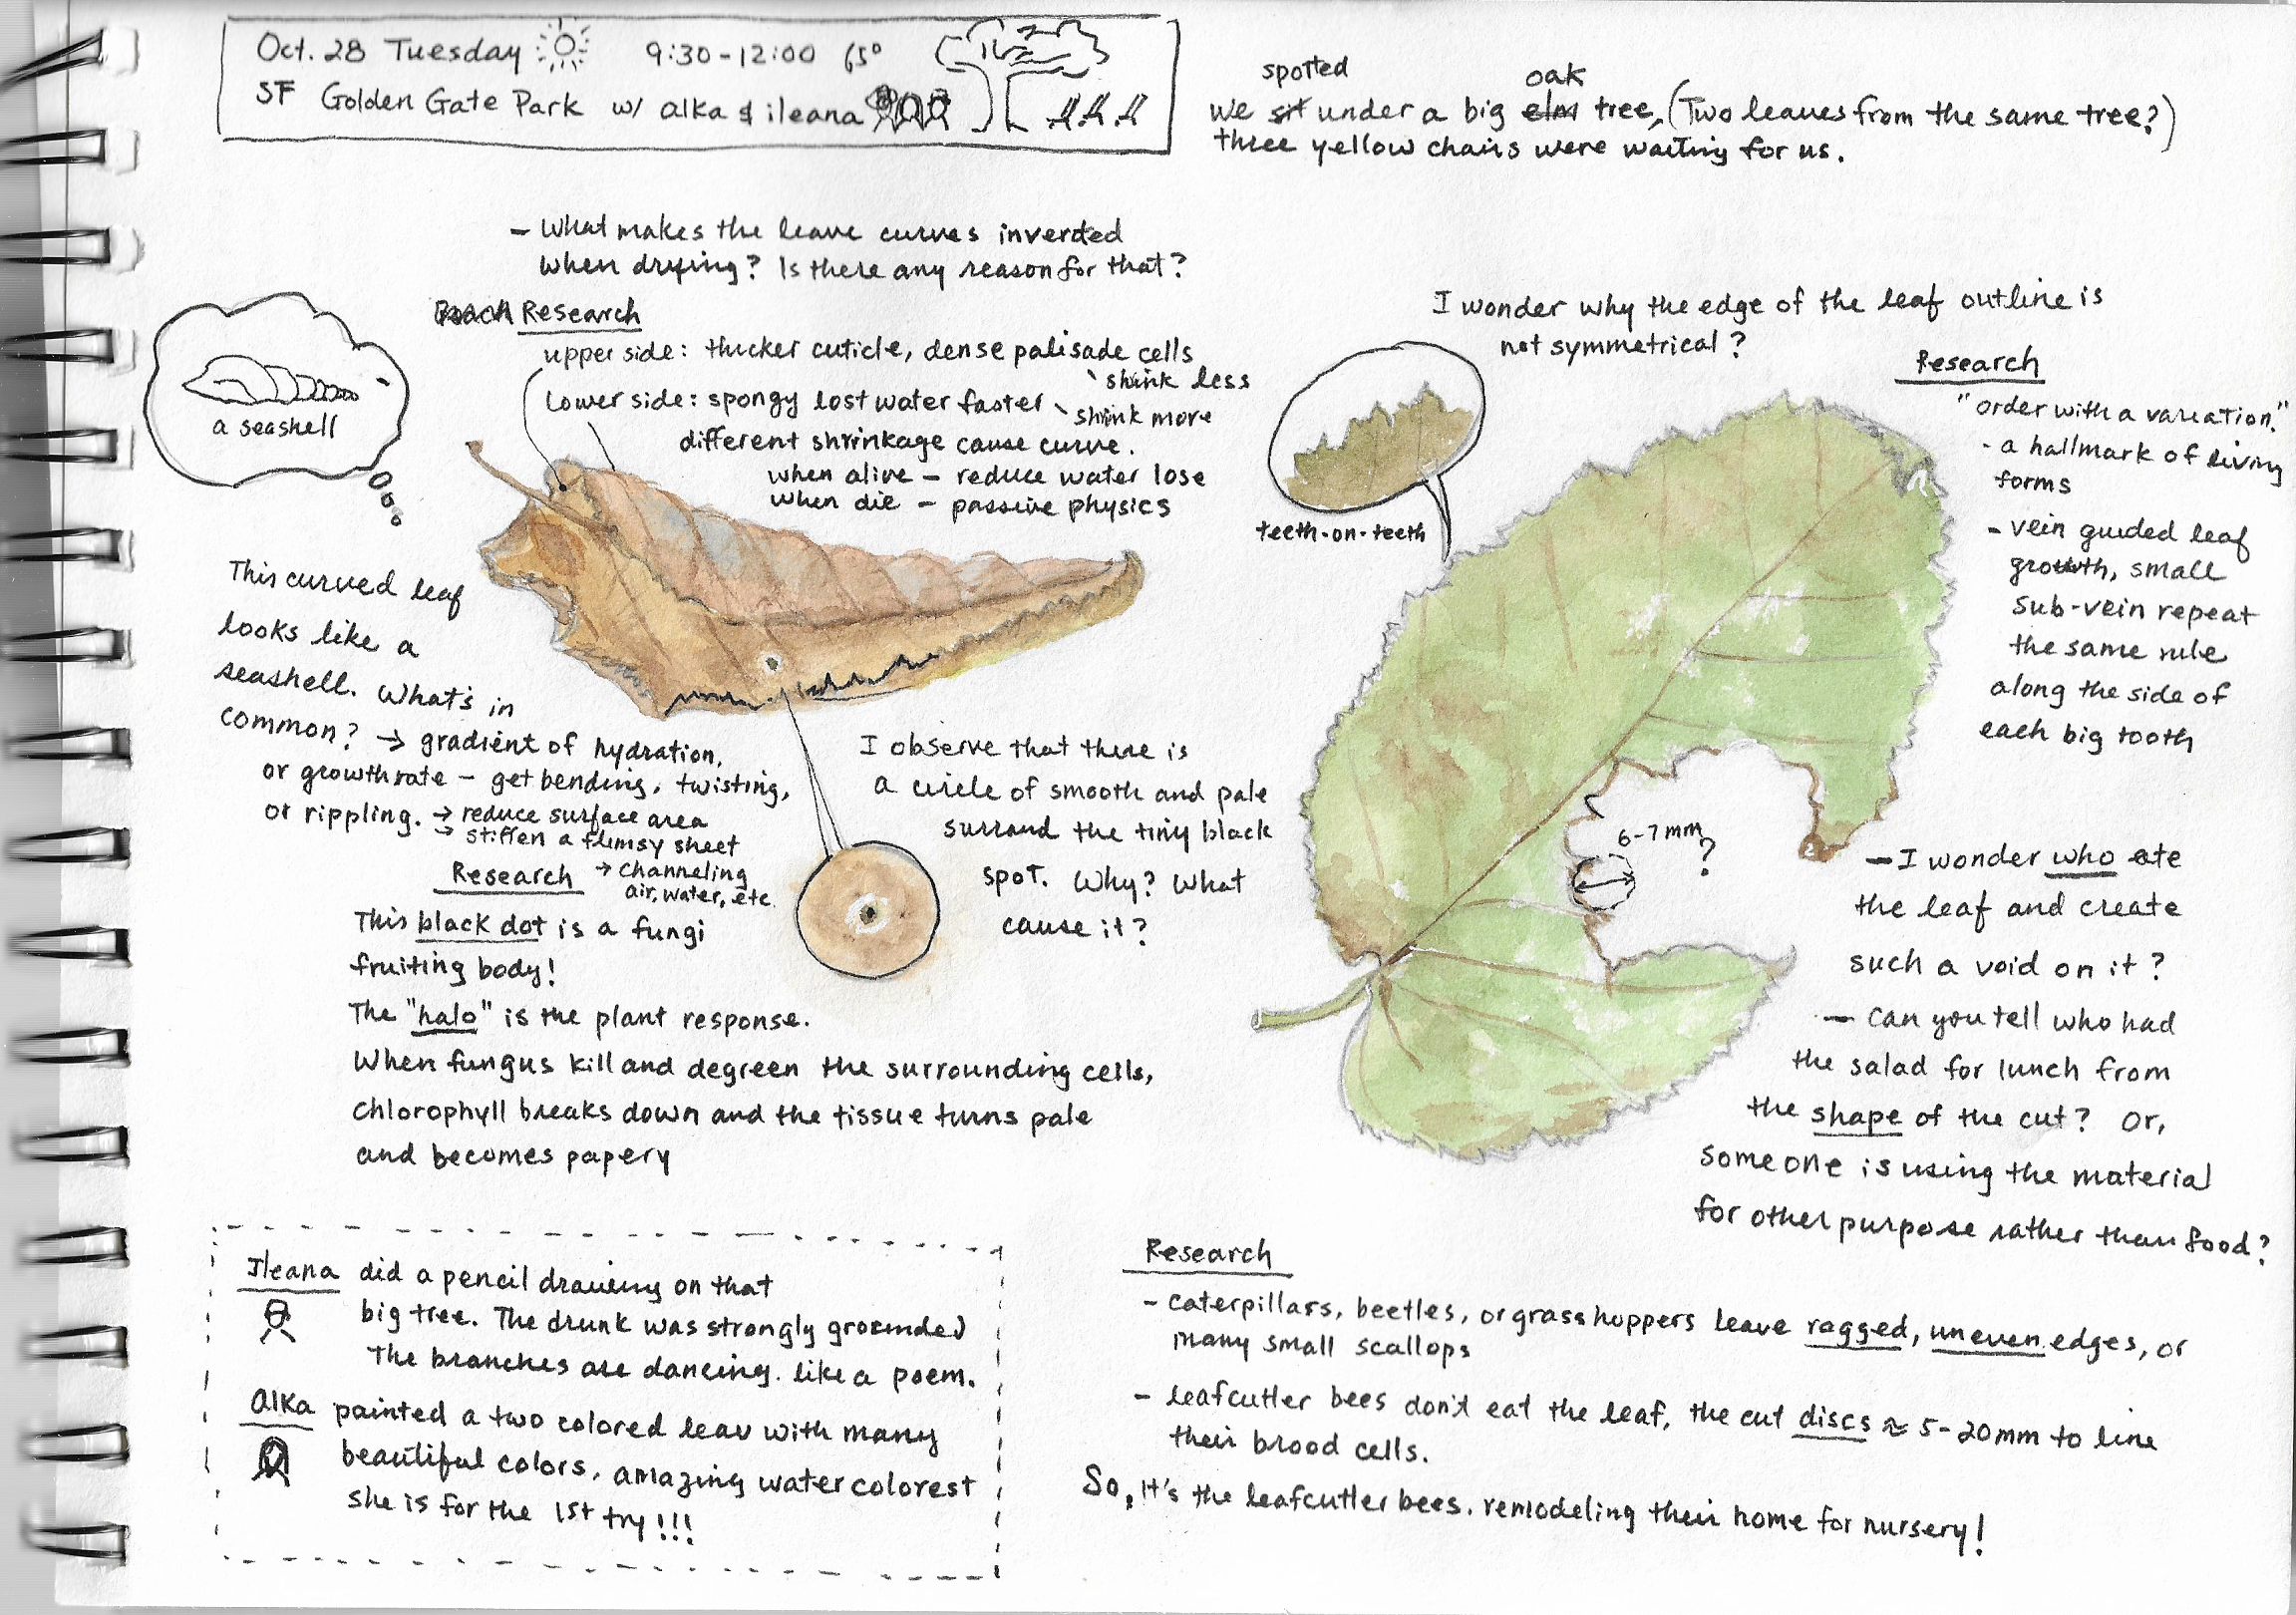 Oct. 28 Tuesday 9:30-12:00 65°
SF Golden Gate Park w/ alka & ileana
spotted oak
we sit under a big elm tree, (Two leaves from the same tree?)
three yellow chairs were waiting for us.
- What makes the leave curves inverted
when drying? Is there any reason for that?
Research
upper side: thicker cuticle, dense palisade cells
shink less
lower side: spongy lost water faster
shink more
different shrinkage cause curve.
when alive - reduce water lose
when die - passive physics
a seashell
This curved leaf
looks like a
seashell. What's in
common? → gradient of hydration,
or growthrate - get bending, twisting,
or rippling. → reduce surface area
→ stiffen a flimsy sheet
→ channeling
air, water, etc.
Research
This black dot is a fungi
fruiting body!
The "halo" is the plant response.
When fungus kill and degreen the surrounding cells,
chlorophyll breaks down and the tissue turns pale
and becomes papery
I observe that there is
a circle of smooth and pale
surround the tiny black
spot. Why? What
cause it?
Ileana did a pencil drawing on that
big tree. The drunk was strongly grounded
The branches are dancing. like a poem.
Alka painted a two colored leav with many
beautiful colors, amazing watercolorest
she is for the 1st try!!!
I wonder why the edge of the leaf outline is
not symmetrical?
teeth-on-teeth
Research
"order with a variation."
- a hallmark of living
forms
- vein guided leaf
growth, small
sub-vein repeat
the same rule
along the side of
each big tooth
6-7mm
?
- I wonder who ate
the leaf and create
such a void on it?
- Can you tell who had
the salad for lunch from
the shape of the cut? Or,
someone is using the material
for other purpose rather than food?
Research
- caterpillars, beetles, or grasshoppers leave ragged, uneven edges, or
many small scallops
- leafcutter bees don't eat the leaf, the cut discs ≈ 5-20mm to line
their brood cells.
So, it's the leafcutter bees. remodeling their home for nursery!